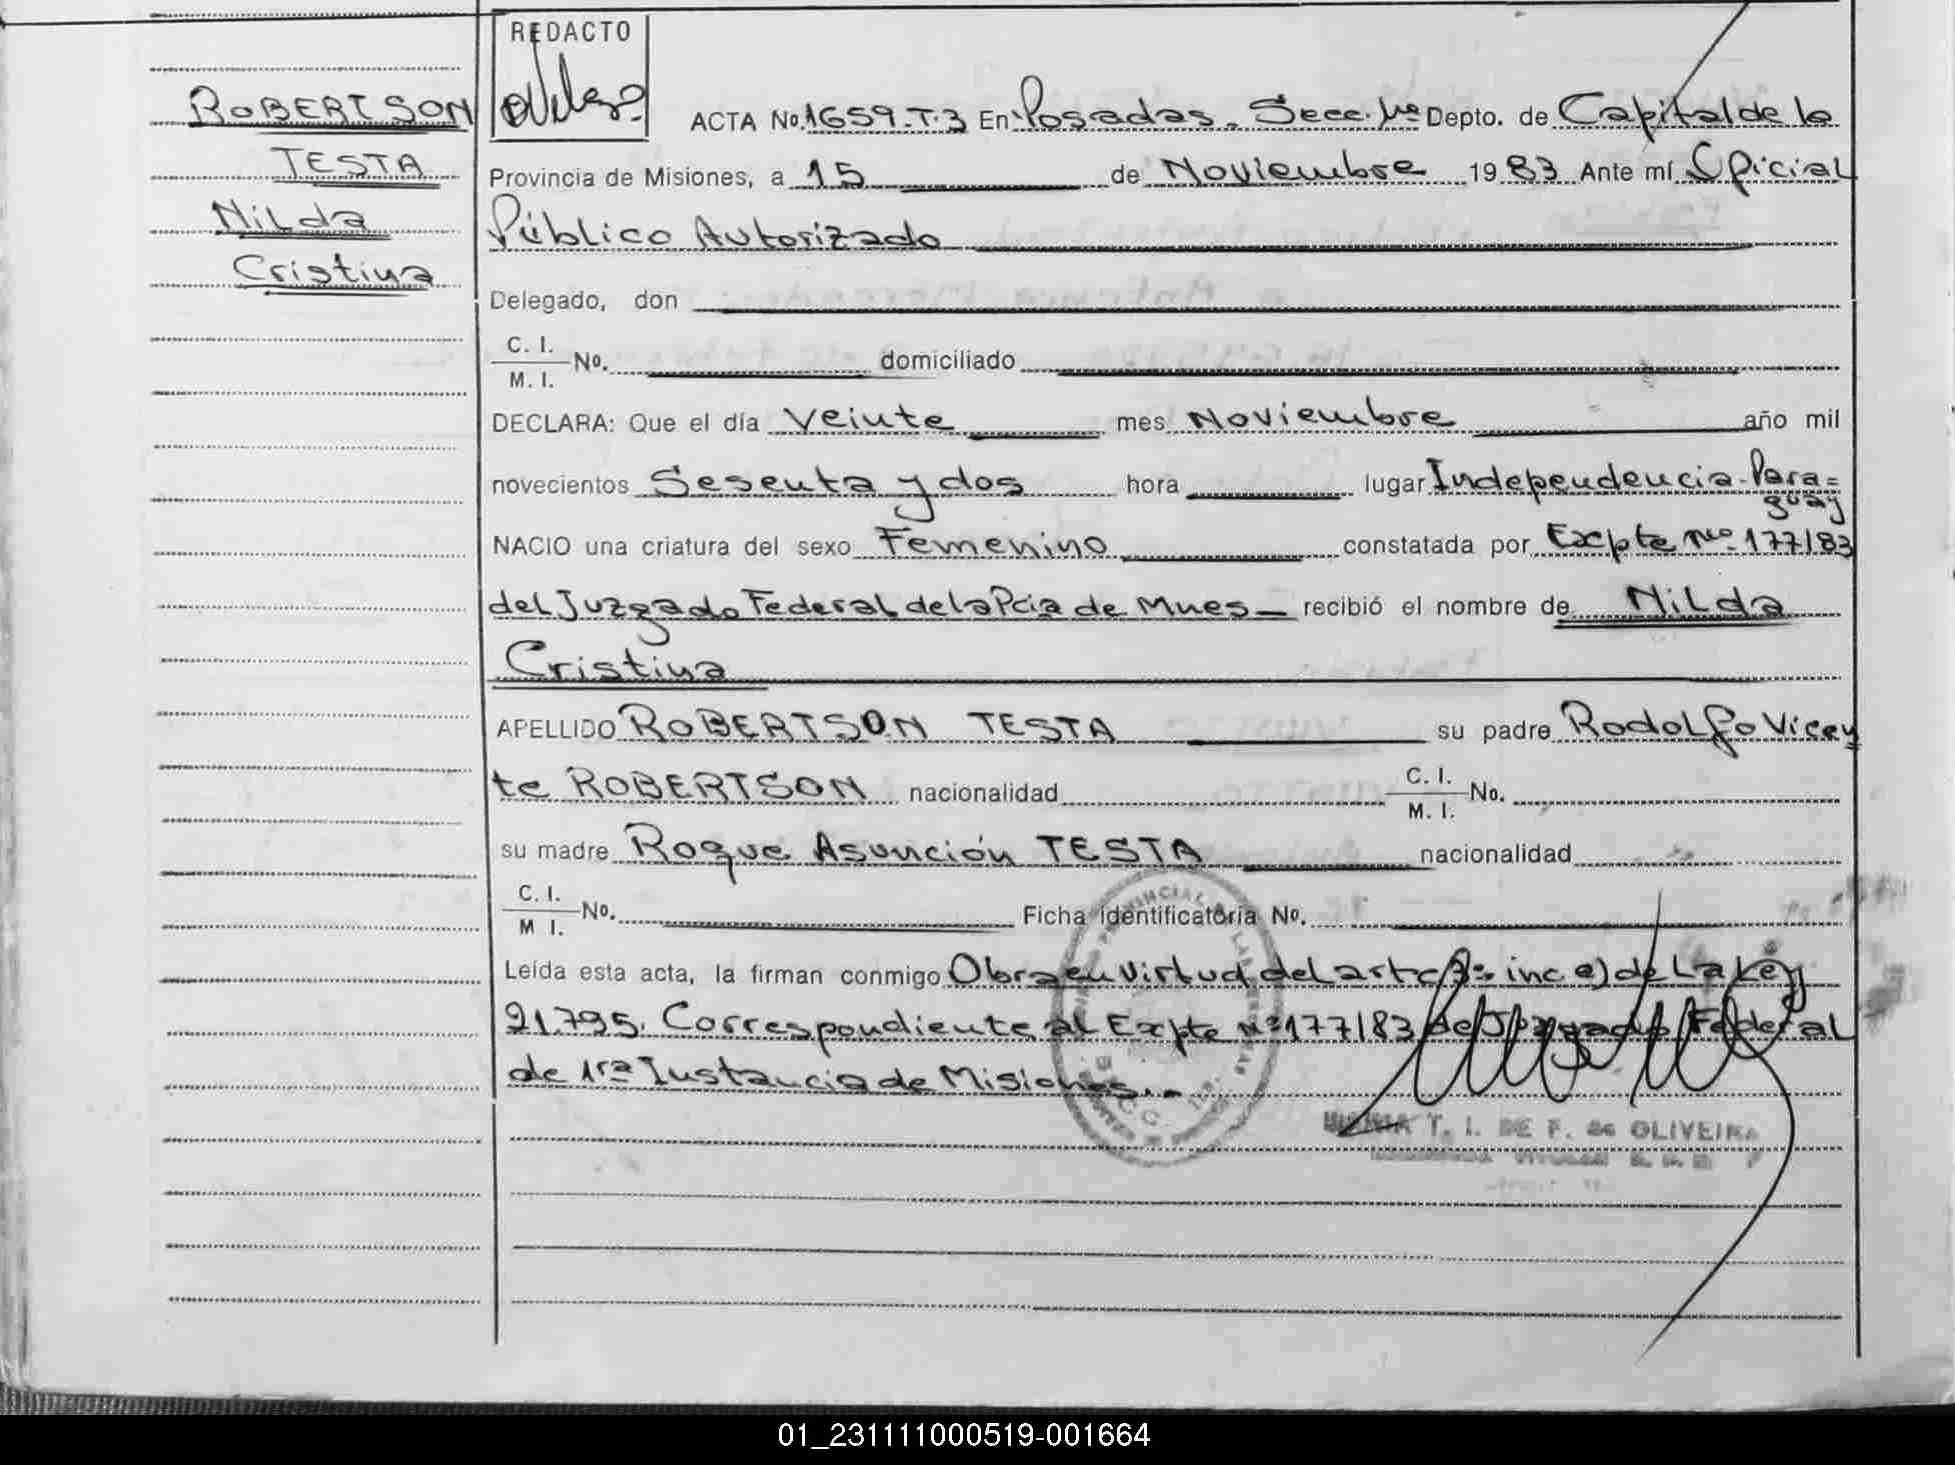 REDACTO
ROBERTSON
TESTA
Nilda
Cristina
ACTA No. 1659-T·3 En Posadas, Secc. 1ra Depto. de Capital de la
Provincia de Misiones, a 15 de Noviembre 1983 Ante mí Oficial
Público Autorizado
Delegado, don
C. I.
M. I. No. domiciliado
DECLARA: Que el día Veinte mes Noviembre año mil
novecientos Sesenta y dos hora lugar Independencia-Para=
guay
NACIO una criatura del sexo Femenino constatada por Expte Nº 177/83
del Juzgado Federal de la Pcia de Mnes recibió el nombre de Nilda
Cristina
APELLIDO ROBERTSON TESTA su padre Rodolfo Vicen
te ROBERTSON nacionalidad C. I.
M. I. No.
su madre Roque Asunción TESTA nacionalidad
C. I.
M I. No. Ficha identificatoria No.
Leída esta acta, la firman conmigo Obra en virtud del art inc a) de La Ley
21.795. Correspondiente al Expte Nº 177/83 del Juzgado Federal
de 1ra Instancia de Misiones.-
T. I. DE F. de OLIVEIRA
01_231111000519-001664